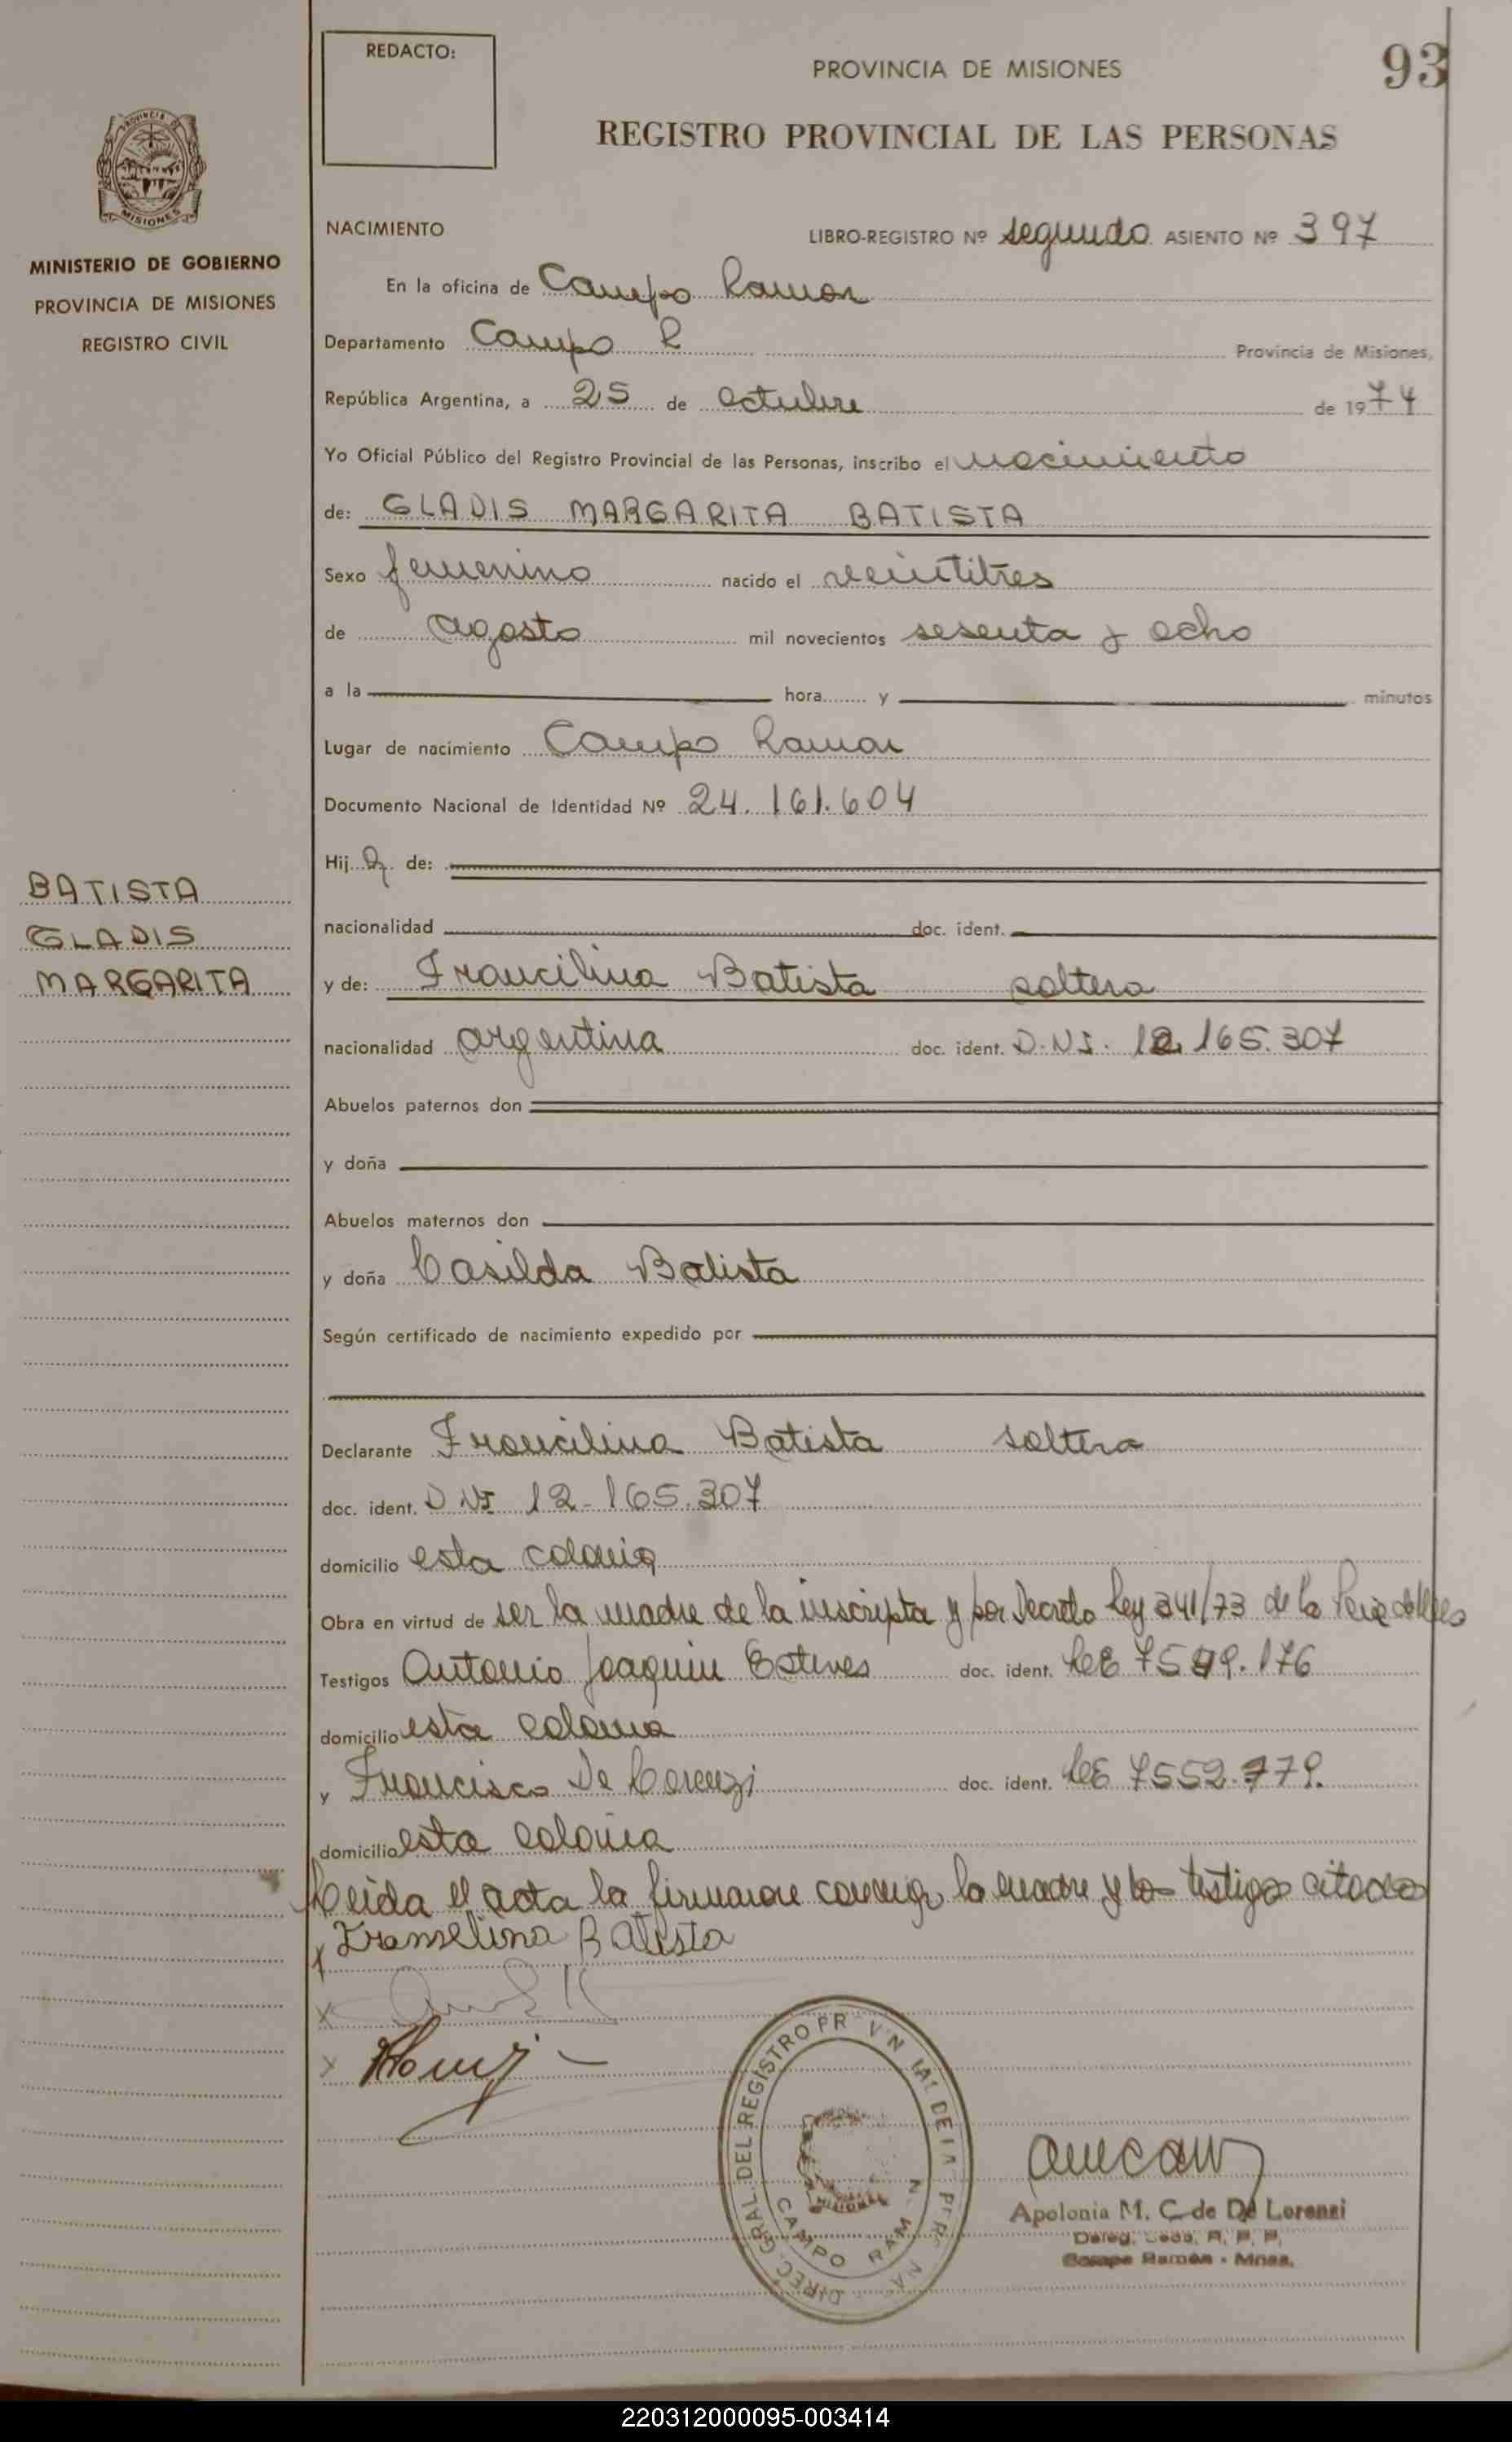 REDACTO:
PROVINCIA DE MISIONES
93
REGISTRO PROVINCIAL DE LAS PERSONAS
PROVINCIA DE
MISIONES
MINISTERIO DE GOBIERNO
PROVINCIA DE MISIONES
REGISTRO CIVIL
NACIMIENTO
LIBRO-REGISTRO Nº segundo ASIENTO Nº 397
En la oficina de Campo Ramon
Departamento Campo R Provincia de Misiones,
República Argentina, a 25 de octubre de 1974
Yo Oficial Público del Registro Provincial de las Personas, inscribo el nacimiento
de: GLADIS MARGARITA BATISTA
Sexo femenino nacido el veintitres
de agosto mil novecientos sesenta y ocho
a la hora y minutos
Lugar de nacimiento Campo Ramon
Documento Nacional de Identidad Nº 24.161.604
Hija de:
BATISTA
GLADIS
MARGARITA
nacionalidad doc. ident.
y de: Francilina Batista soltera
nacionalidad argentina doc. ident. D.N.I. 12.165.307
Abuelos paternos don
y doña
Abuelos maternos don
y doña Casilda Batista
Según certificado de nacimiento expedido por
Declarante Francilina Batista soltera
doc. ident. D NI 12-165.307
domicilio esta colonia
Obra en virtud de ser la madre de la inscripta y por Decreto Ley 341/73 de la
Testigos Antonio Joaquin Esteves doc. ident. LE
domicilio esta colonia
y Francisco De Lorenzi doc. ident. LE 7552.779.
domicilio esta colonia
Leida el acta la firmaron conmigo, la madre y los testigos citados
x Franselina Batista
x
x
DIREC. GRAL. DEL REGISTRO PR V N IAL DE LA PER NA
CAMPO RAM N
MISIONES
Apolonia M. C. de De Lorenzi
Deleg. R. P. P.
Campo Ramón - Mnes.
220312000095-003414